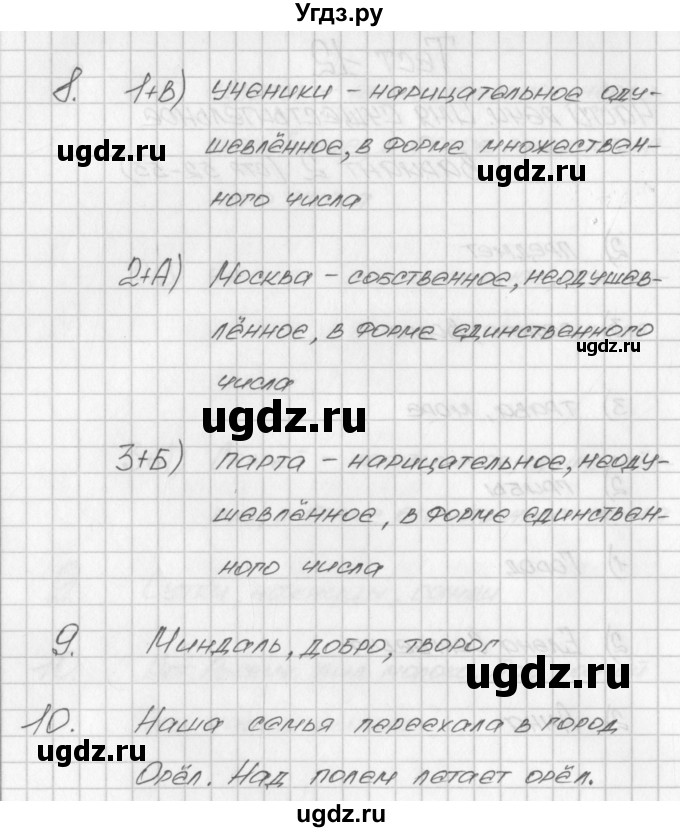 Угдз.ру
8. 1+В) ученики – нарицательное оду-
шевлённое, в форме множествен-
ugdz.ru
ugdz.ru
ного числа
2+А) Москва – собственное, неодушев-
лённое, в форме единственного
ugdz.ru
числа
ugdz.ru
3+Б) парта – нарицательное, неоду-
шевлённое, в форме единствен-
ugdz.ru
ного числа
9. Миндаль, добро, творог
ugdz.ru
10. Наша семья переехала в город
ugdz.ru
Орёл. Над полем летает орёл.
ugdz.ru